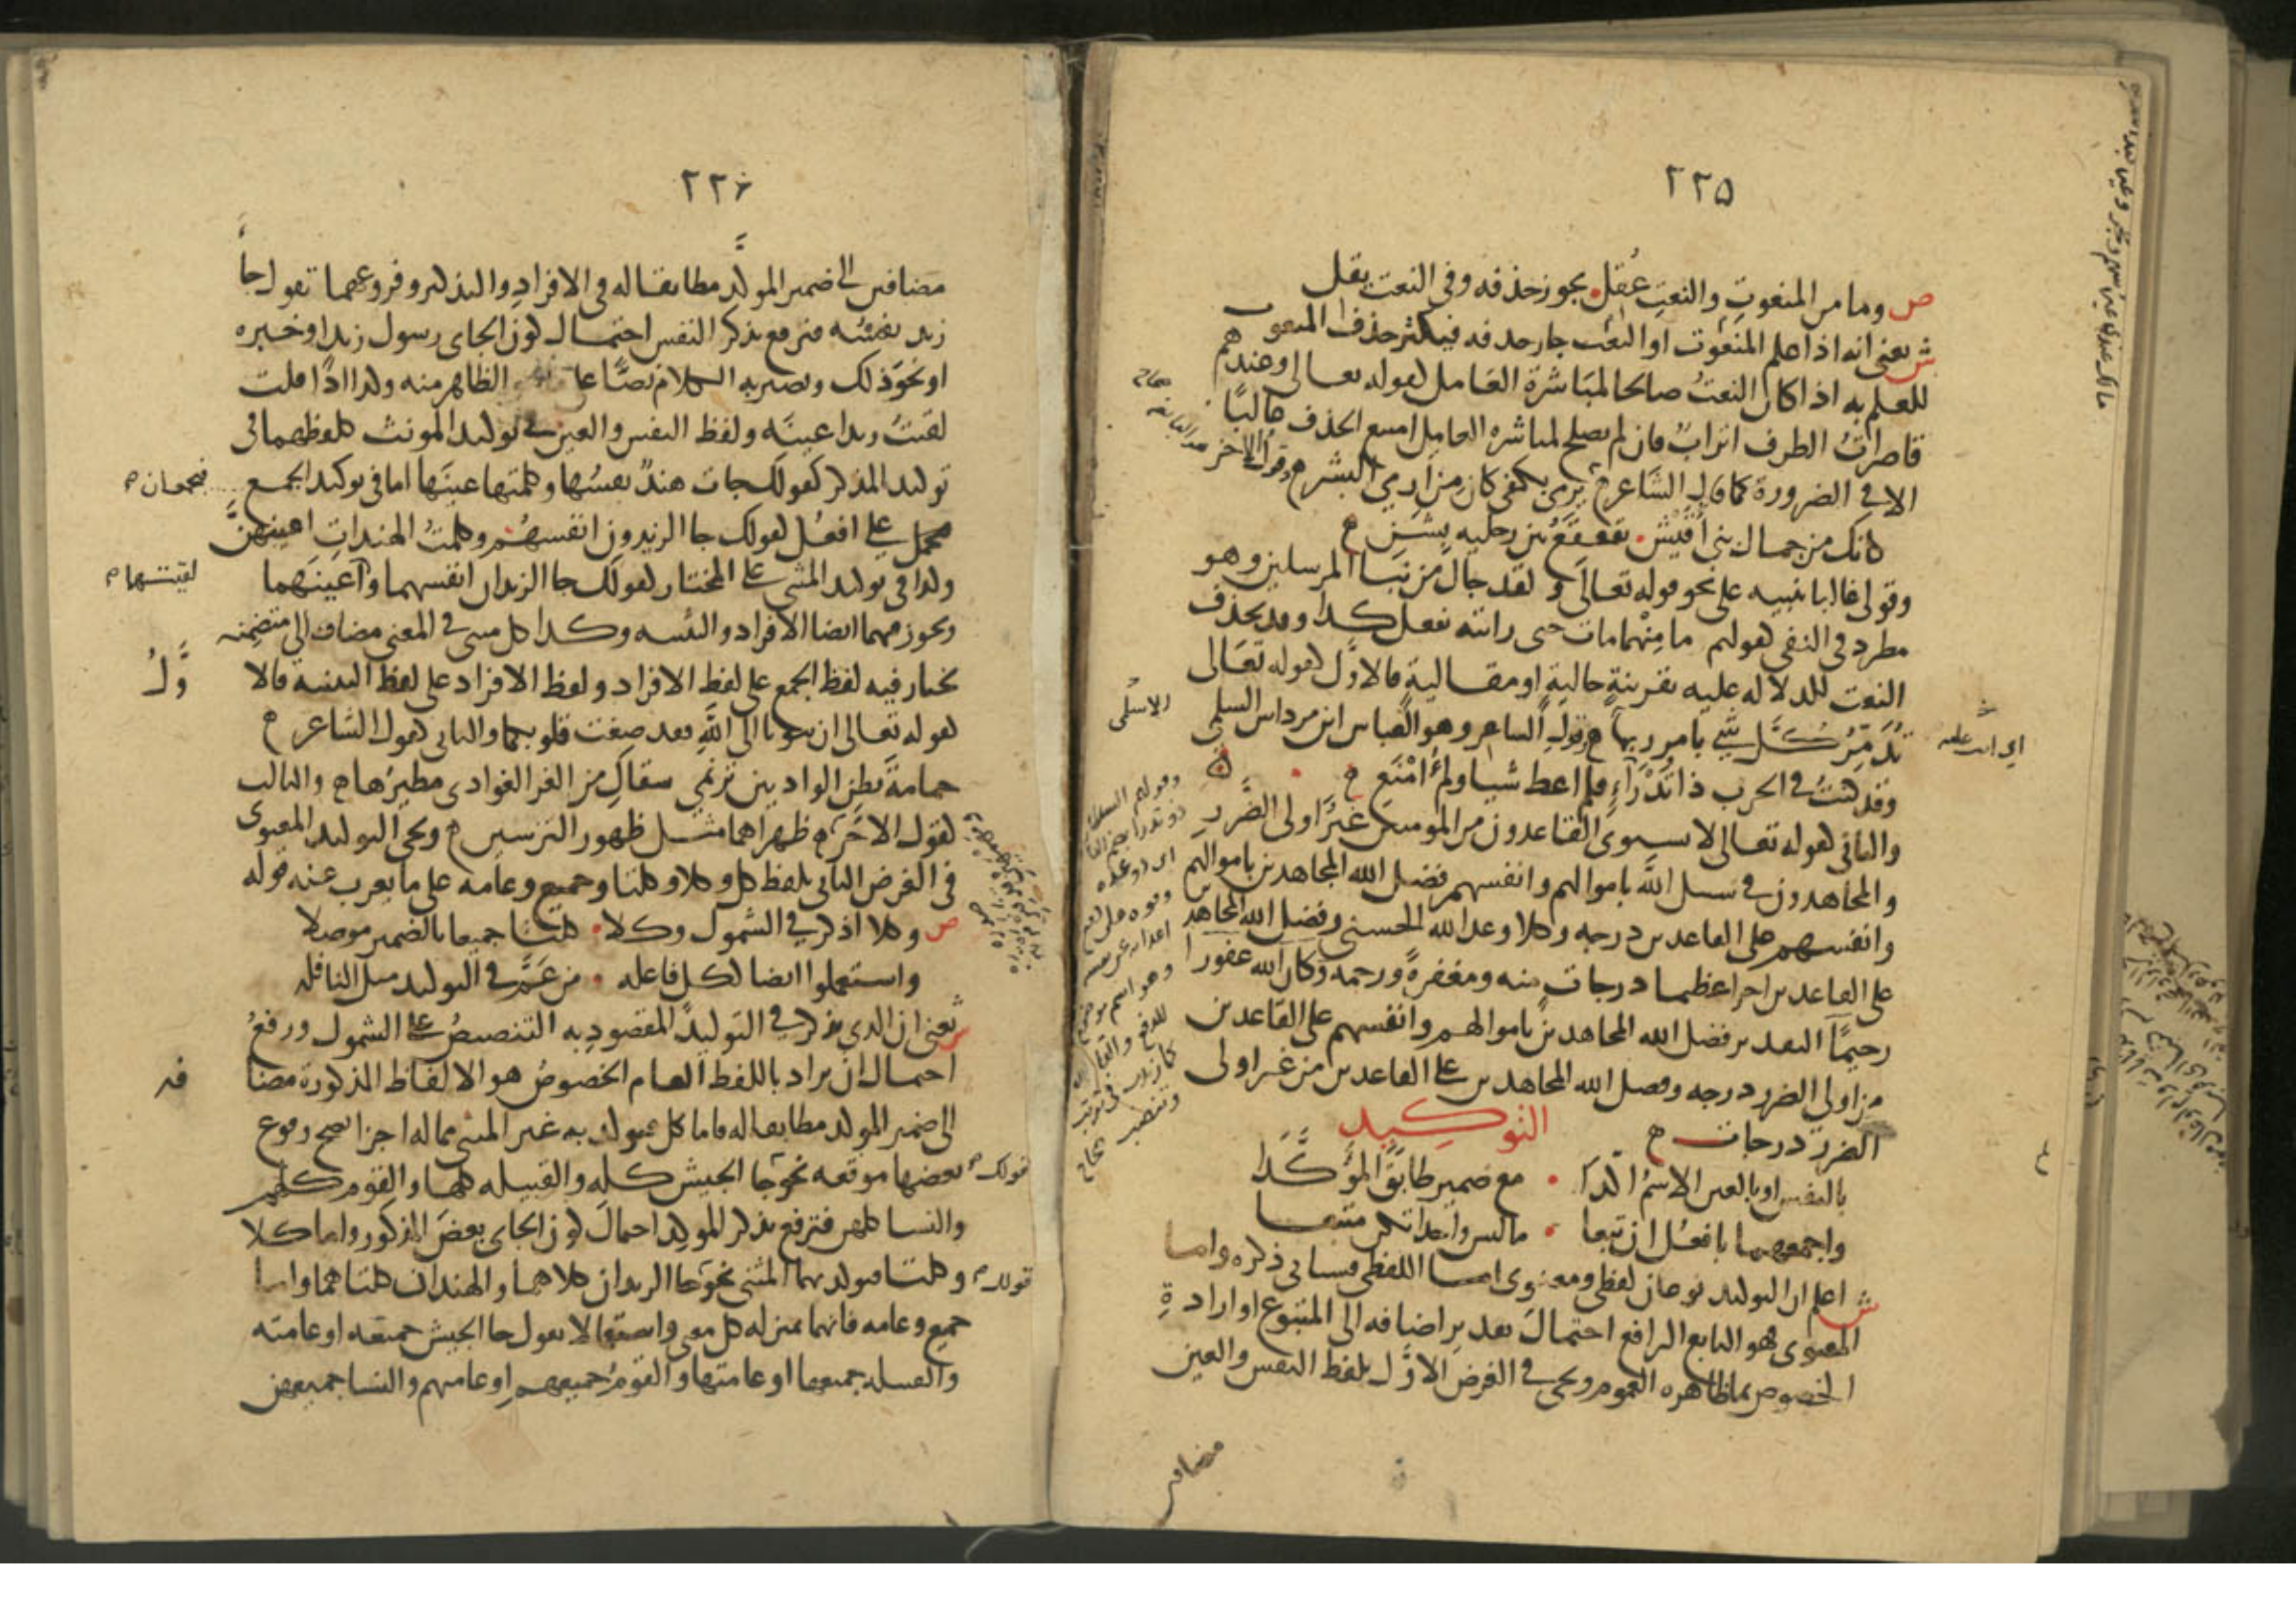 ٢٢٥
ص وما من المنعوتِ والنعتِ عُقِل يجوز حذفه وفي النعت يقل
ش يعني انه اذا علم المنعوت او النعت جاز حذفه فيكثر حذف المنعوت
للعلم به اذا كان النعتُ صالحا لمباشرة العامل كقوله تعالى وعندهم
قاصراتُ الطرف اترابٌ فان لم يصلح لمباشرة العامل امتنع الحذف غالبًا
الا في الضرورة كما قال الشاعر ترمي بكفي كان من ارمي البشر وقول الاخر
كانك من جمال بني أُقَيْش يقعقع بين رجليه بشن
وقولي غالبا تنبيه على نحو قوله تعالى ولقد جاك من نبا المرسلين وهو
مطرد في النفي كقولهم ما منهما مات حتى رايته يفعل كذا وقد يحذف
النعت للدلاله عليه بقرينةٍ حاليةٍ او مقاليةٍ فالاوّل كقوله تعالى
تدمّر كلَّ شيٍ بامر ربها وقول الشاعر وهو العباس ابن مرداس السلمي
وقد كنتُ في الحرب ذا تُدْرَإٍ فلم اعط شيا ولم امْنَعِ
والثاني كقوله تعالى لا يستوى القاعدون من المومنين غيرُ اولى الضَّررِ
والمجاهدون في سبيل اللّه باموالهم وانفسهم فضل الله المجاهدين باموالهم
وانفسهم على القاعدين درجه وكلا وعد الله الحسنى وفضل الله المجاهدين
على القاعدين اجرا عظيما درجات منه ومغفرةً ورحمه وكان الله غفورا
رحيمًا التقدير فضل الله المجاهدين باموالهم وانفسهم على القاعدين
من اولي الضرر درجه وفضل الله المجاهدين على القاعدين من غير اولى
الضرر درجات
التوكيد
بالنفس او بالعين الاسمُ اكّدا مع ضمير طابقَ المؤكَّدا
واجمعهما بافعُل ان تبعا ما ليس واحدا تكن متبعا
ش اعلم ان التوكيد نوعان لفظي ومعنوى اما اللفظي فسياتي ذكره واما
المعنوى فهو التابع الرافع احتمالَ تقدير اضافه الى المتبوع او ارادةِ
الخصوص بما ظاهره العموم ويجي في الغرض الاوّل بلفظ النفس والعين
مضافين
٢٢٦
مضافين الى ضمير المؤكَّد مطابقا له في الافراد والتذكير وفروعهما تقول جاَ
زيد نفسُه فترفع بذكر النفس احتمال كون الجاى رسول زيد او خبره
او نحوَ ذلك ويصير به الكلام نصًّا على الظاهر منه وكذا اذا قلت
لقيتُ زيدا عينَه ولفظ النفس والعين في توكيد المونث كلفظهما في
توكيد المذكر كقولك جات هندٌ نفسُها وكلمتها عينَها اما في توكيد الجمع فيجمعان
على افعُل كقولك جا الزيدون انفسهُم وكلمتُ الهنداتِ اعينهنَّ
وكذا في توكيد المثنى على المختار كقولك جا الزيدان انفسهما ولقيتهما اعينَهما
ويجوز فيهما ايضا الافراد والتثنيه وكذا كل مثنى في المعنى مضاف الى متضمنه
يختار فيه لفظ الجمع على لفظ الافراد ولفظ الافراد على لفظ التثنيه فالاوَّلُ
كقوله تعالى ان تتوبا الى اللّهِ فقد صغت قلوبكما والثاني كقول الشاعر
حمامةَ بطنِ الواديين ترنمي سقاكِ من الغر الغوادي مطيرُها والثالث
كقول الاخر ظهراهما مثل ظهور الترسين ويجي التوكيد المعنوى
في الغرض الثاني بلفظ كل وكلا وكلتا وجميع وعامه على ما يعرب عنه قوله
ص وكلا اذكر في الشمول وكلا كلتا جميعا بالضمير موصلا
واستعملوا ايضا ككل فاعله من عَمَّ في التوكيد مثل النافله
ش يعني ان الذي يذكر في التوكيد المقصودِ به التنصيصُ على الشمول ورفعُ
احتمال ان يراد باللفظ العام الخصوصُ هو الالفاظ المذكورة مضافه
الى ضمير المؤكد مطابقا له فاما كل فيوكد به غير المثنى مما له اجزا يصح وقوع
بعضها موقعه نحو قولك جا الجيش كله والقبيله كلها والقوم كلهم
والنسا كلهن فترفع بذكر المؤكد احتمالَ كون الجاى بعضَ المذكور واما كلا
وكلتا فيوكد بهما المثنى نحو قولك جا الزيدان كلاهما والهندان كلتاهما واما
جميع وعامه فانهما بمنزله كل معنى واستعمالا تقول جا الجيش جميعه او عامته
والقبيله جميعها او عامتها والقومُ جميعهم او عامتهم والنسا جميعهن